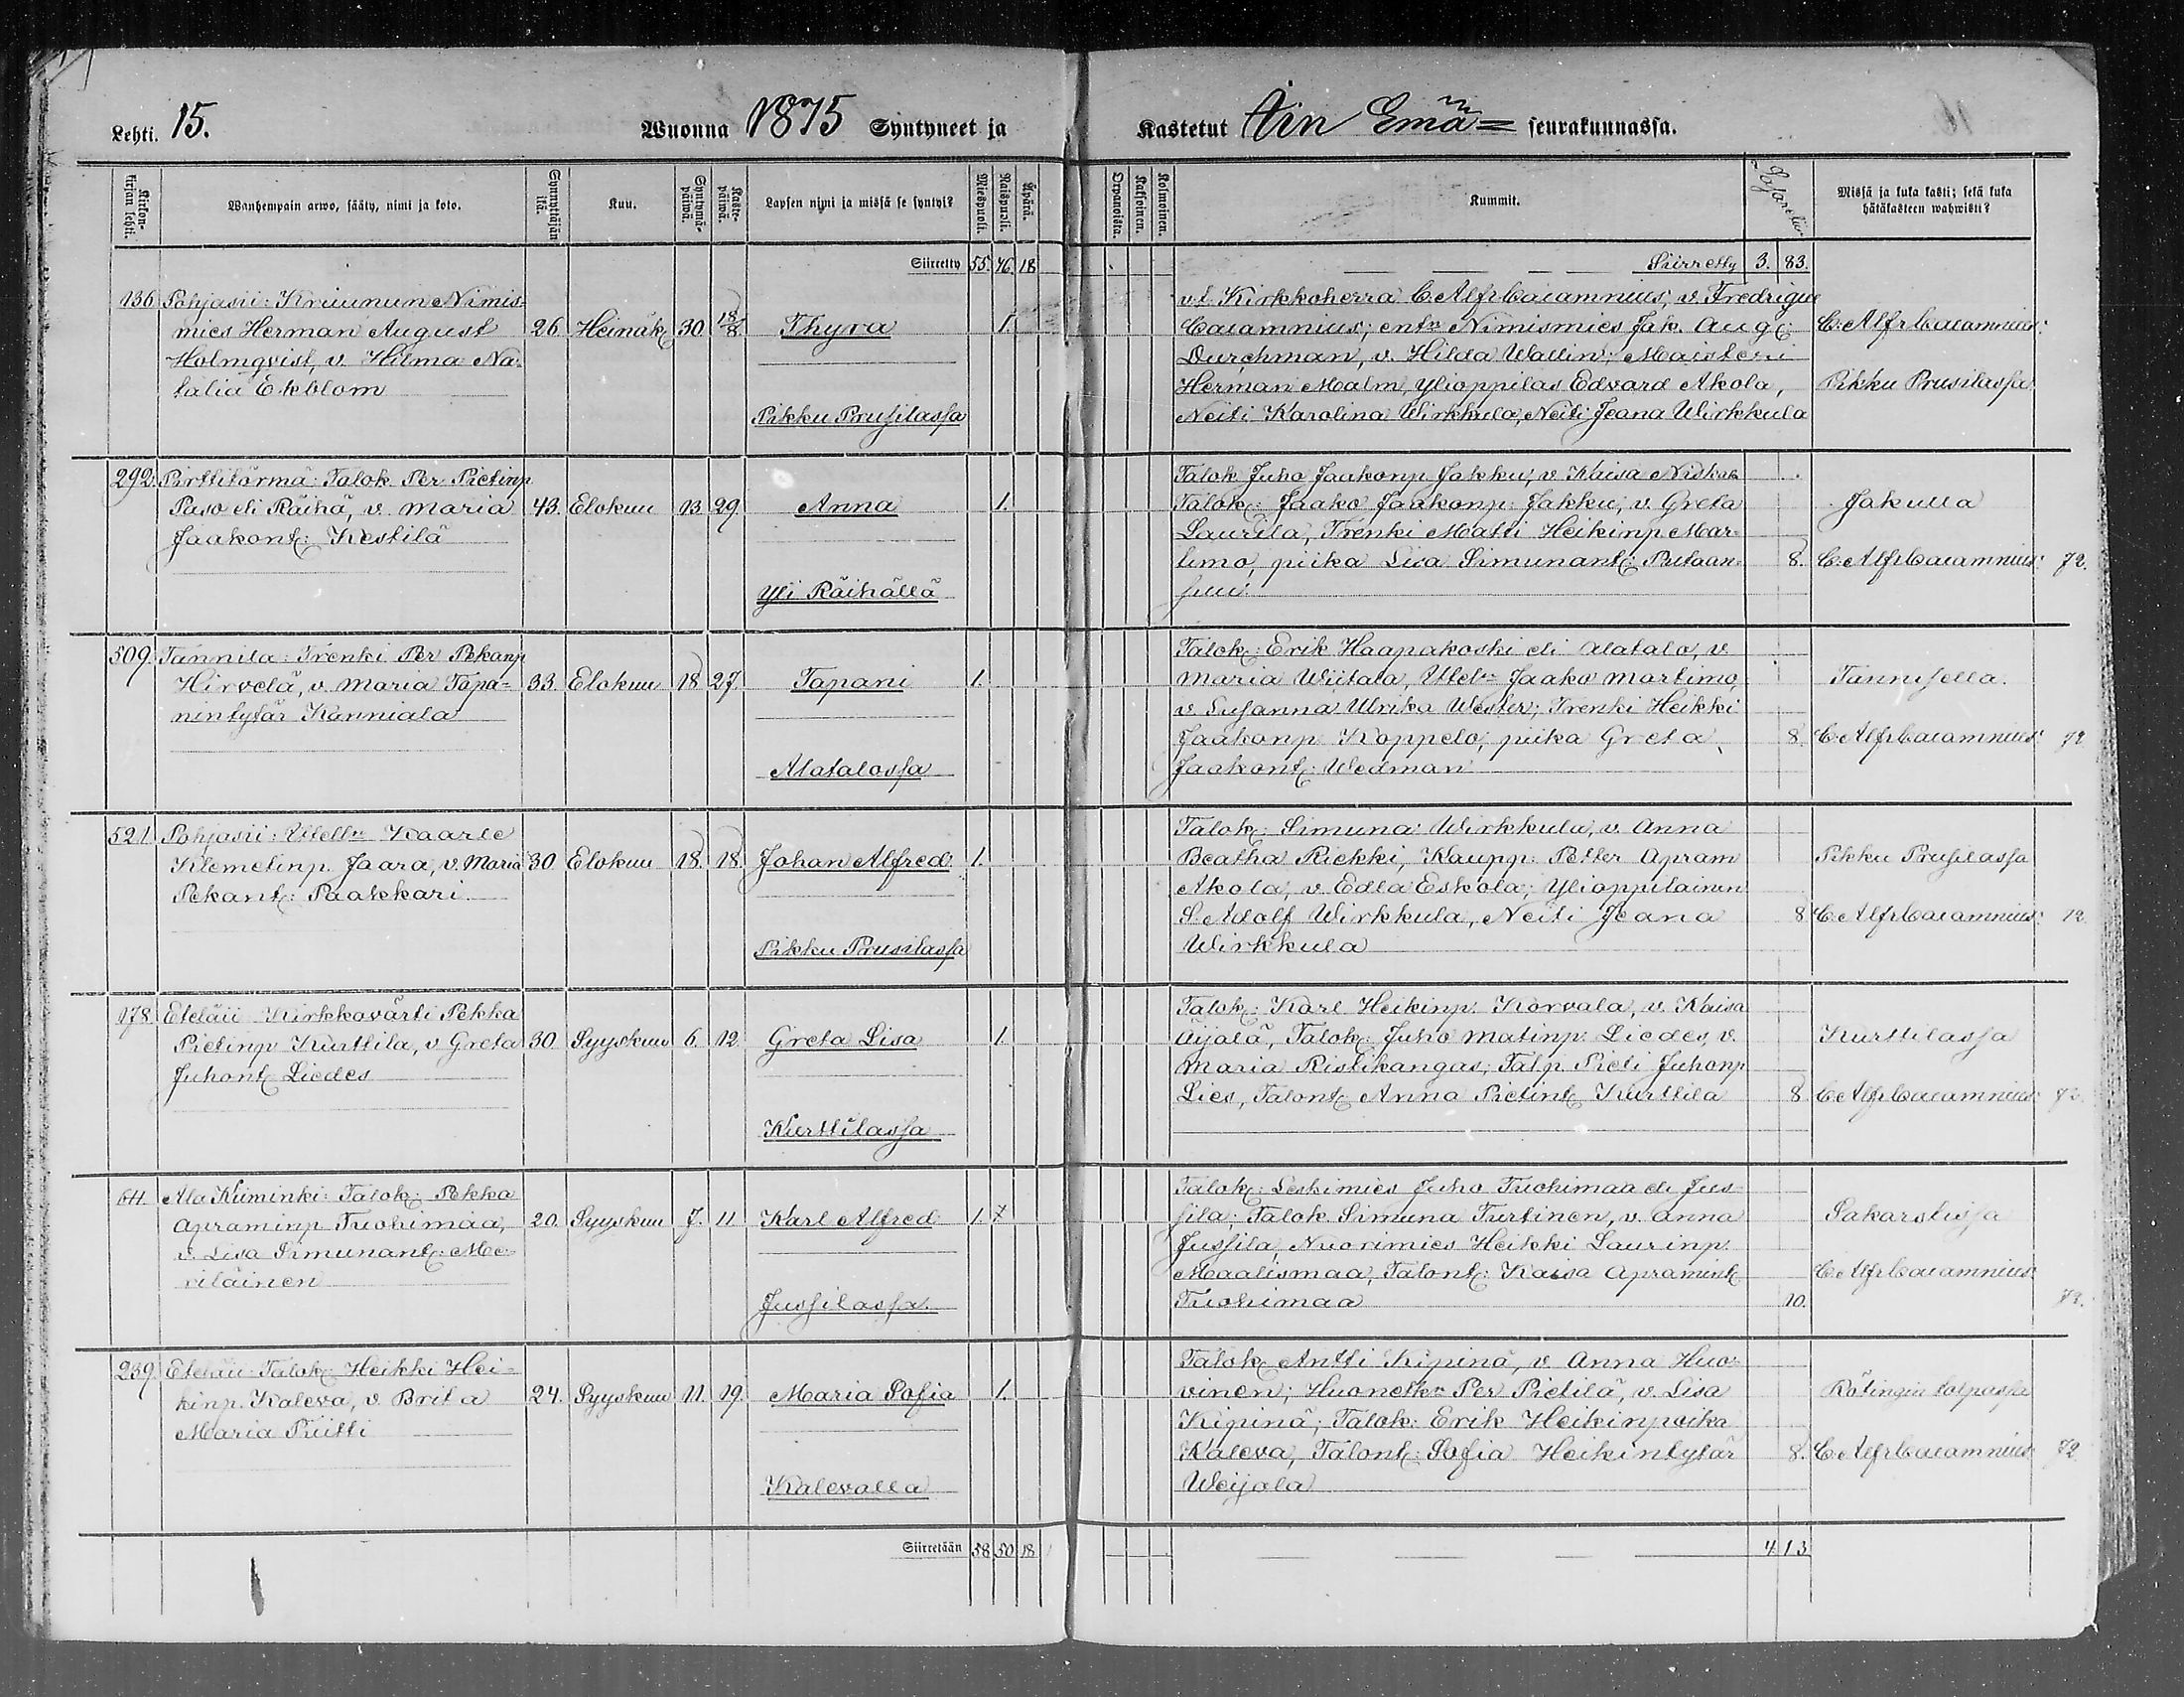 Lehti. 15.
Wuonna 1875 Syntyneet ja
Kirkon-kirjan lehti.
Wanhempain arwo, sääty, nimi ja koto.
Synnyttäjän ikä.
Kuu.
Syntymä-päiwä.
Kaste-päiwä.
Lapsen nimi ja missä se syntyi?
Miespuoli.
Waimopuoli.
Äpärä.
Siirretty 55. 46. 18
136 Pohjasii: Kruunun Nimis-
mies Herman August 26. Heinäk: 30. 18/8 Thyra 1.
Holmqvist, v. Hilma Na-
talia Ekblom
Pikku Prusilassa
292. Pirttitörmä: Talok Per Pietinp
Paso eli Räihä, v. Maria 43. Elokuu 13. 29. Anna 1.
Jaakont: Kestilä
Yli Räihällä
509. Tannila: Trenki Per Pekanp
Hirvelä, v. Maria Tapa- 33. Elokuu 18 27 Tapani 1.
nintytär Kanniala
Alatalossa
521. Pohjasii: Itsell:n Kaarle
Klemetinp. Jaara, v. Maria 30 Elokuu 18. 18. Johan Alfred 1.
Pekant: Paakkari
Pikku Prusilassa
178. Eteläii Kirkkovärti Pekka
Pietinp Kurttila, v Greta 30. Syyskuu 6. 12 Greta Lisa 1.
Juhont: Liedes
Kurttilassa
64. Ala Kiiminki: Talok: Pekka
Apraminp Tuohimaa, 20. Syyskuu 7. 11 Karl Alfred 1.
v. Lisa Simunant: Me-
riläinen
Jussilassa.
239. Eteläii: Talok: Heikki Hei-
kinp. Kaleva, v. Brita 24. Syyskuu 11. 19. Maria Sofia 1.
Maria Priitti
Kalevalla
Siirretään 58 50 18
Kastetut Iin Emä= seurakunnassa.
Orpanoista.
Kaksoinen.
Kolmoinen.
Kummit.
Missä ja kuka kasti; sekä kuka
hätäkasteen wahwisti?
Siirretty 3. 83.
v.t. Kirkkoherra C. Alfr Cajamnius, v. Fredrique
Cajamnius; ent:n Nimismies Jak. Aug: C. Alfr Cajamnius:
Durchman, v. Hilda Wallin; Maisteri
Herman Malm, Ylioppilas Edvard Akola, Pikku Prusilassa
Neiti Karolina Wirkkula, Neiti Jeana Wirkkula
Talok Juho Jaakonp Jakku, v. Kaisa Niska
Talok: Jaako Jaakonp: Jakku, v. Greta Jakulla
Laurila, Trenki Matti Heikinp Mar-
timo, piika Lisa Simunant: Putaan- 8. C. Alfr Cajamnius: 72.
suu.
Talok: Erik Haapakoski eli Alatalo, v.
Maria Wiitala, Itsel:n Jaako Martimo, Tannisella.
v. Susanna Ulrika Wester; Trenki Heikki
Jaakonp Koppelo, piika Greta 8. C. Alfr Cajamnius: 72
Jaakont: Wedman
Talok: Simuna Wirkkula, v. Anna
Beatha Riekki, Kaupp: Petter Apram Pikku Prusilassa
Akola, v. Edla Eskola; Ylioppilainen
S. Adolf Wirkkula, Neiti Jeana 8 C. Alfr Cajamnius: 72
Wirkkula
Talok: Karl Heikinp. Korvala, v. Kaisa
Äijälä, Talok: Juho Matinp: Liedes, v. Kurttilassa
Maria Ristikangas; Talp. Pieti Juhonp
Lies, Talont: Anna Pietint: Kurttila 8 C. Alfr Cajamnius: 72
Talok: Leskimies Juho Tuohimaa eli Jus-
sila; Talok. Simuna Turtinen, v. Anna
Jussila, Nuorimies Heikki Laurinp.
Maalismaa, Talont: Kaisa Apramint: C. Alfr Cajamnius:
Tuohimaa 10. 72.
Talok: Antti Kipinä, v. Anna Huo-
vinen; Per Pietilä, v. Lisa
Kipinä; Talok: Erik Heikinpoika
Kaleva, Talont: Sofia Heikintytär 8. C. Alfr Cajamnius: 72
Weijola
4. 13